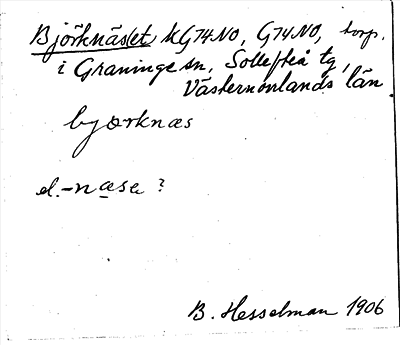 Björknäset KG74NO, G74NO, torp.
i Graninge sn, Sollefteå tg,
Västernorrlands län
bjørknæs
el. -næsa ?
B. Hesselman 1906